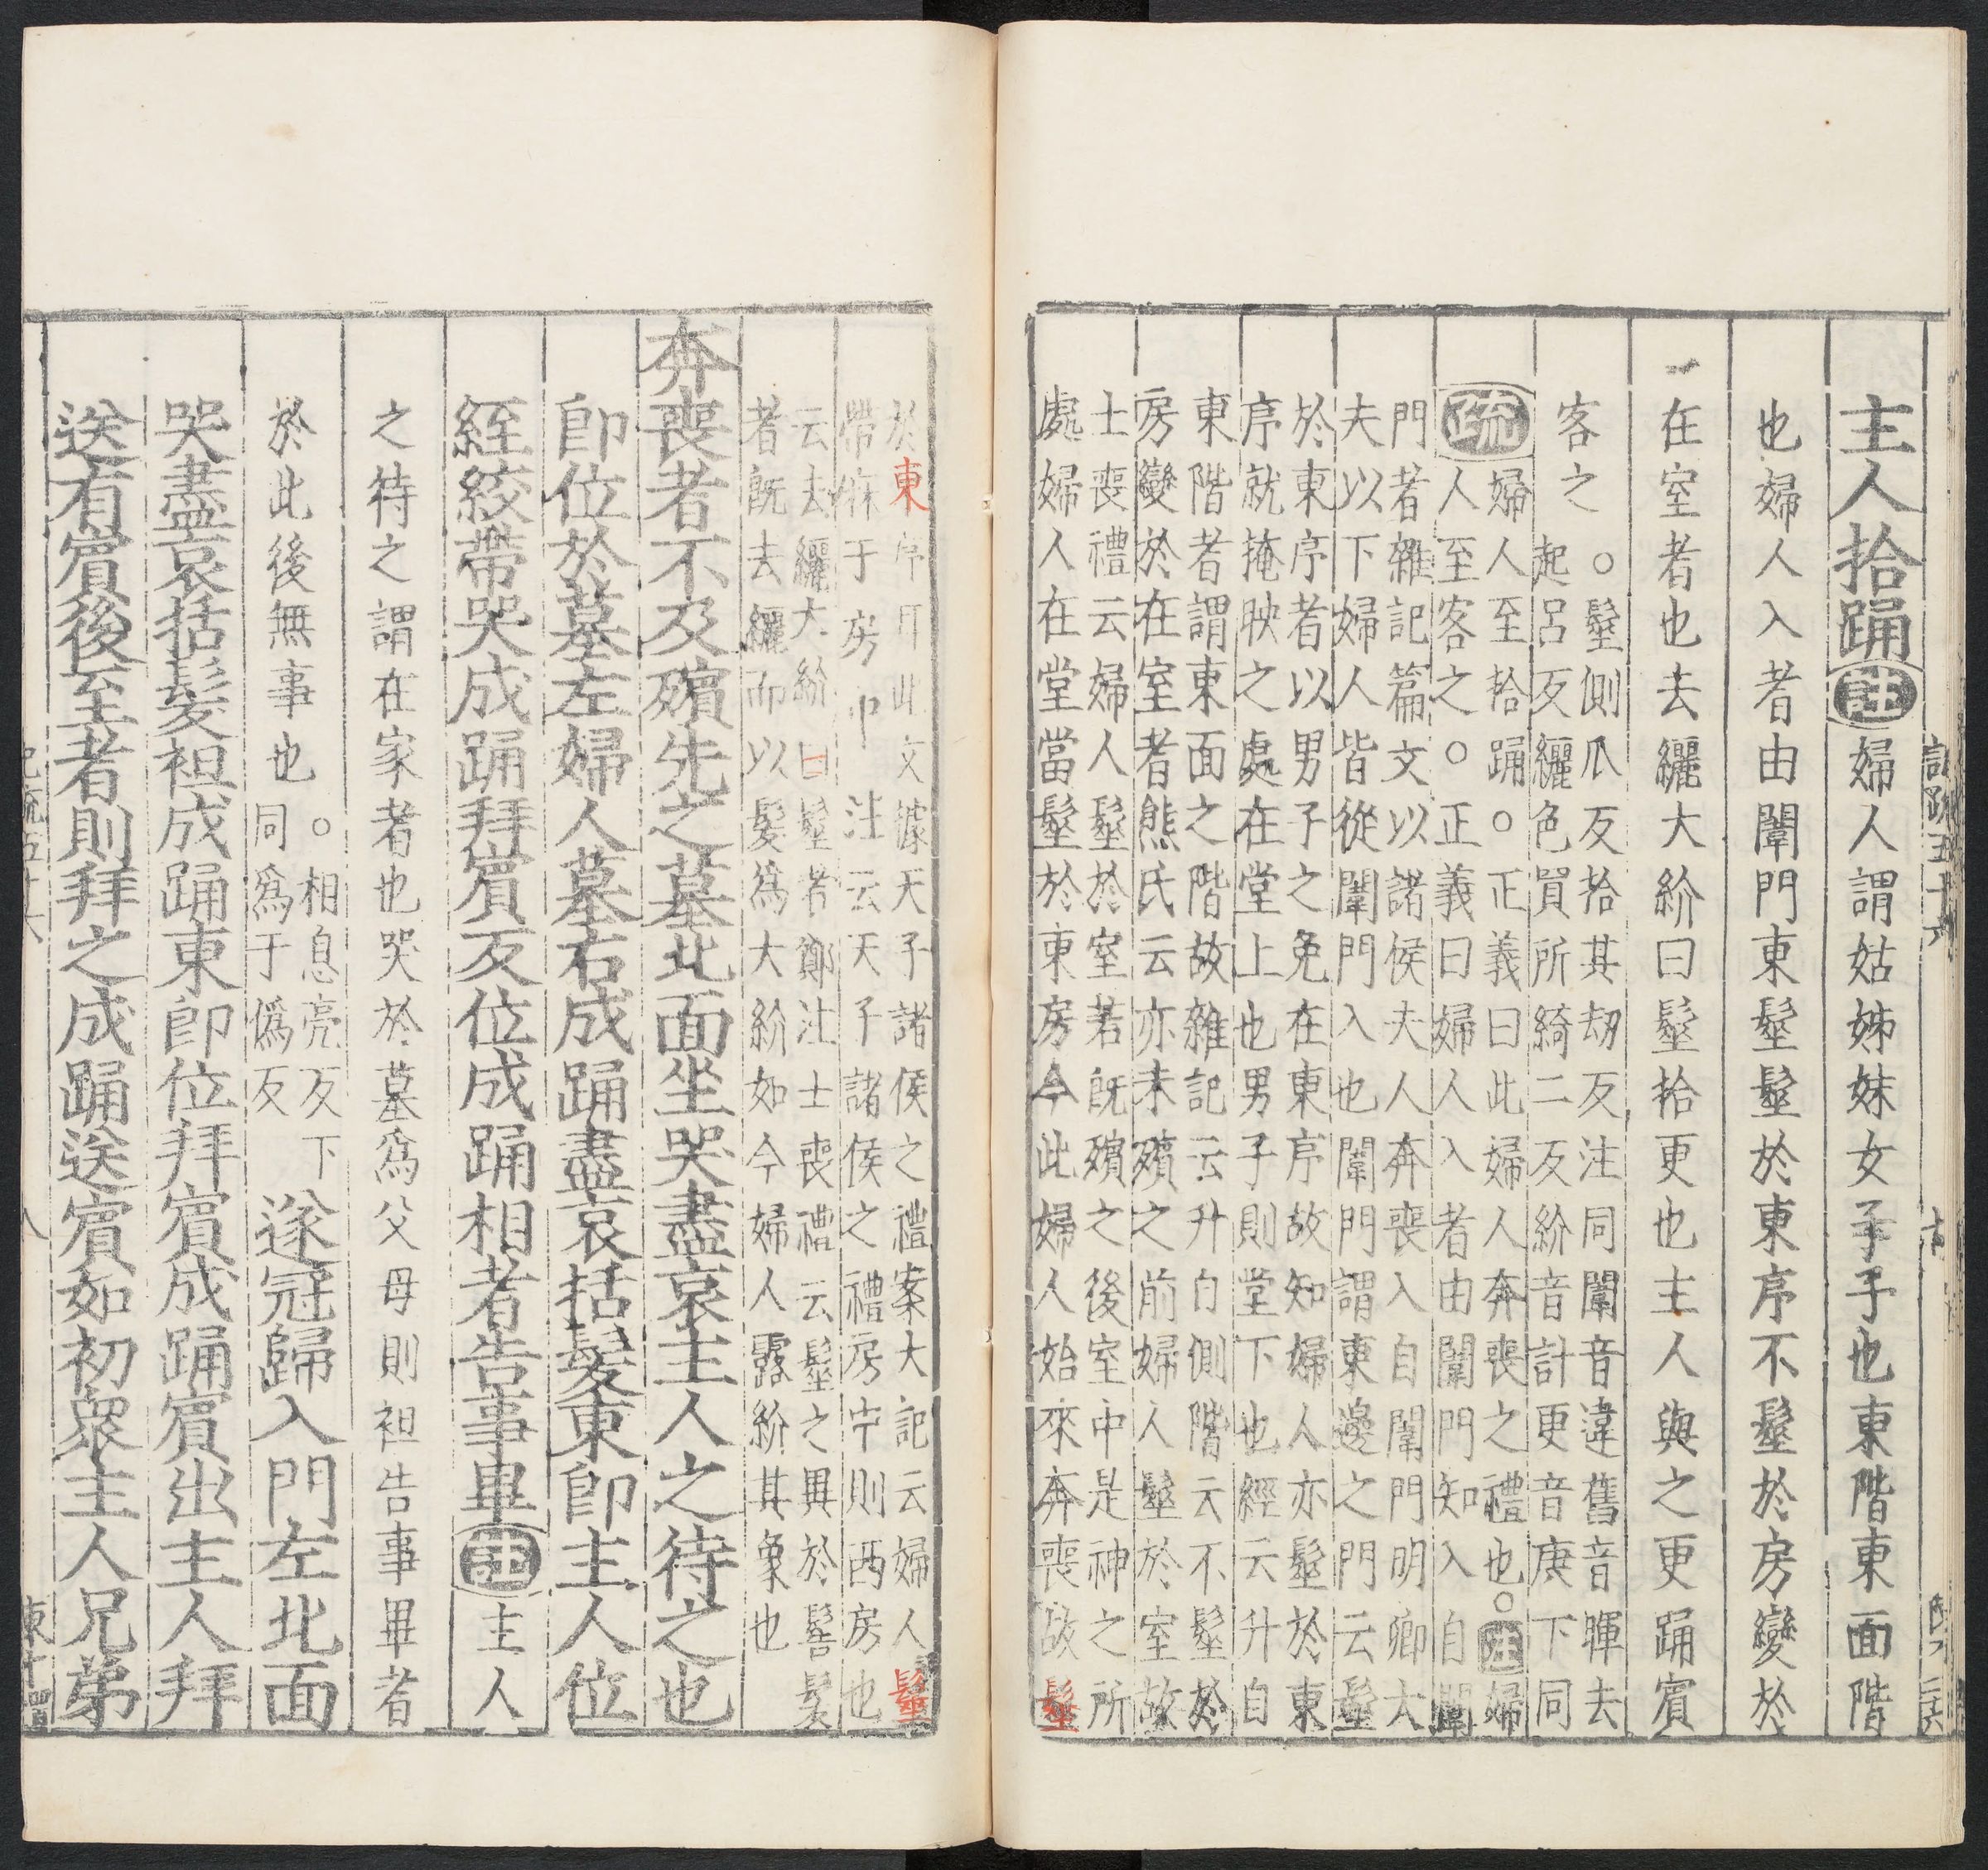 主人拾踊註婦人謂姑姊妹女子子也東階東面階
也婦人入者由闈門東髽髽於東序不髽於房變於
在室者也去纚大紒曰髽拾更也主人與之更踊賓
客之○髽側瓜反拾其劫反注同闈音違舊音暉去
起呂反纚色買所綺二反紒音計更音庚下同
疏婦人至拾踊○正義曰此婦人奔喪之禮也○注婦
人至客之○正義曰婦人入者由闈門知入自闈
門者雜記篇文以諸侯夫人奔喪入自闈門明卿大
夫以下婦人皆從闈門入也闈門謂東邊之門云髽
於東序者以男子之免在東序故知婦人亦髽於東
序就掩映之處在堂上也男子則堂下也經云升自
東階者謂東面之階故雜記云升自側階云不髽於
房變於在室者熊氏云亦未殯之前婦人髽於室故
士喪禮云婦人髽於室若旣殯之後室中是神之所
處婦人在堂當髽於東房今此婦人始來奔喪故髽
於東序耳此文據天子諸侯之禮案大記云婦人髽
帶麻于房中注云天子諸侯之禮房中則西房也
云去纚大紒曰髽者鄭注士喪禮云髽之異於髻髮
者旣去纚而以髮爲大紒如今婦人露紒其象也
奔喪者不及殯先之墓北面坐哭盡哀主人之待之也
卽位於墓左婦人墓右成踊盡哀括髮東卽主人位
絰絞帶哭成踊拜賓反位成踊相者告事畢註主人
之待之謂在家者也哭於墓爲父母則袒告事畢者
於此後無事也○相息亮反下
同爲于僞反
遂冠歸入門左北面
哭盡哀括髮袒成踊東卽位拜賓成踊賓出主人拜
送有賓後至者則拜之成踊送賓如初衆主人兄弟